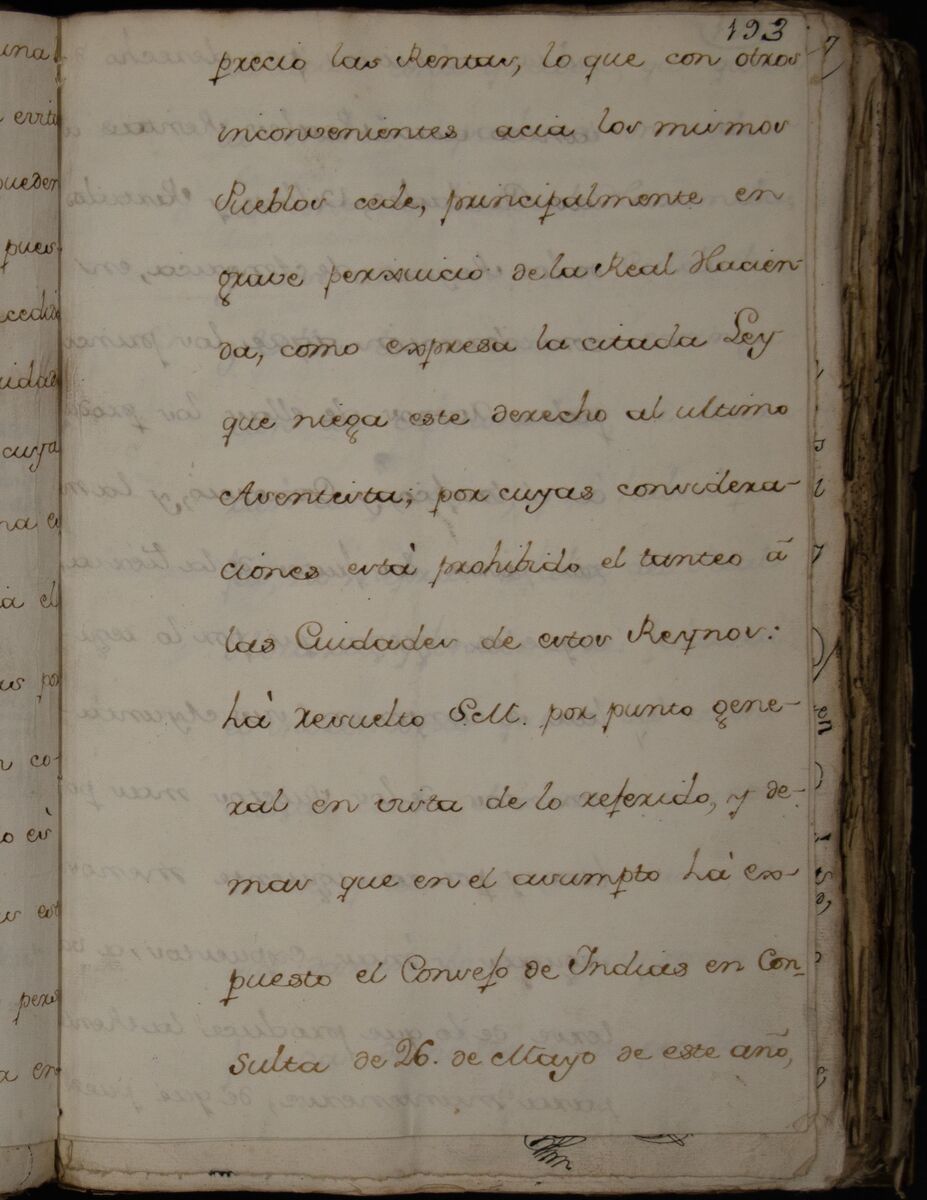 193
precio las Rentas, lo que con otros
inconvenientes acia los mismos
Pueblos cede, principalmente en
grave perxuicio de la Real Hacien-
da, como expresa la citada Ley
que niega este derecho al ultimo
Arentista; por cuyas considera-
ciones està prohibido el tanteo ã
las Ciudades de estos Reynos:
hà resuelto S.M. por punto gene-
ral en vista de lo referido, y de-
mas que en el asumpto hà ex-
puesto el Consejo de Indias en Con-
sulta de 26. de Mayo de este año,